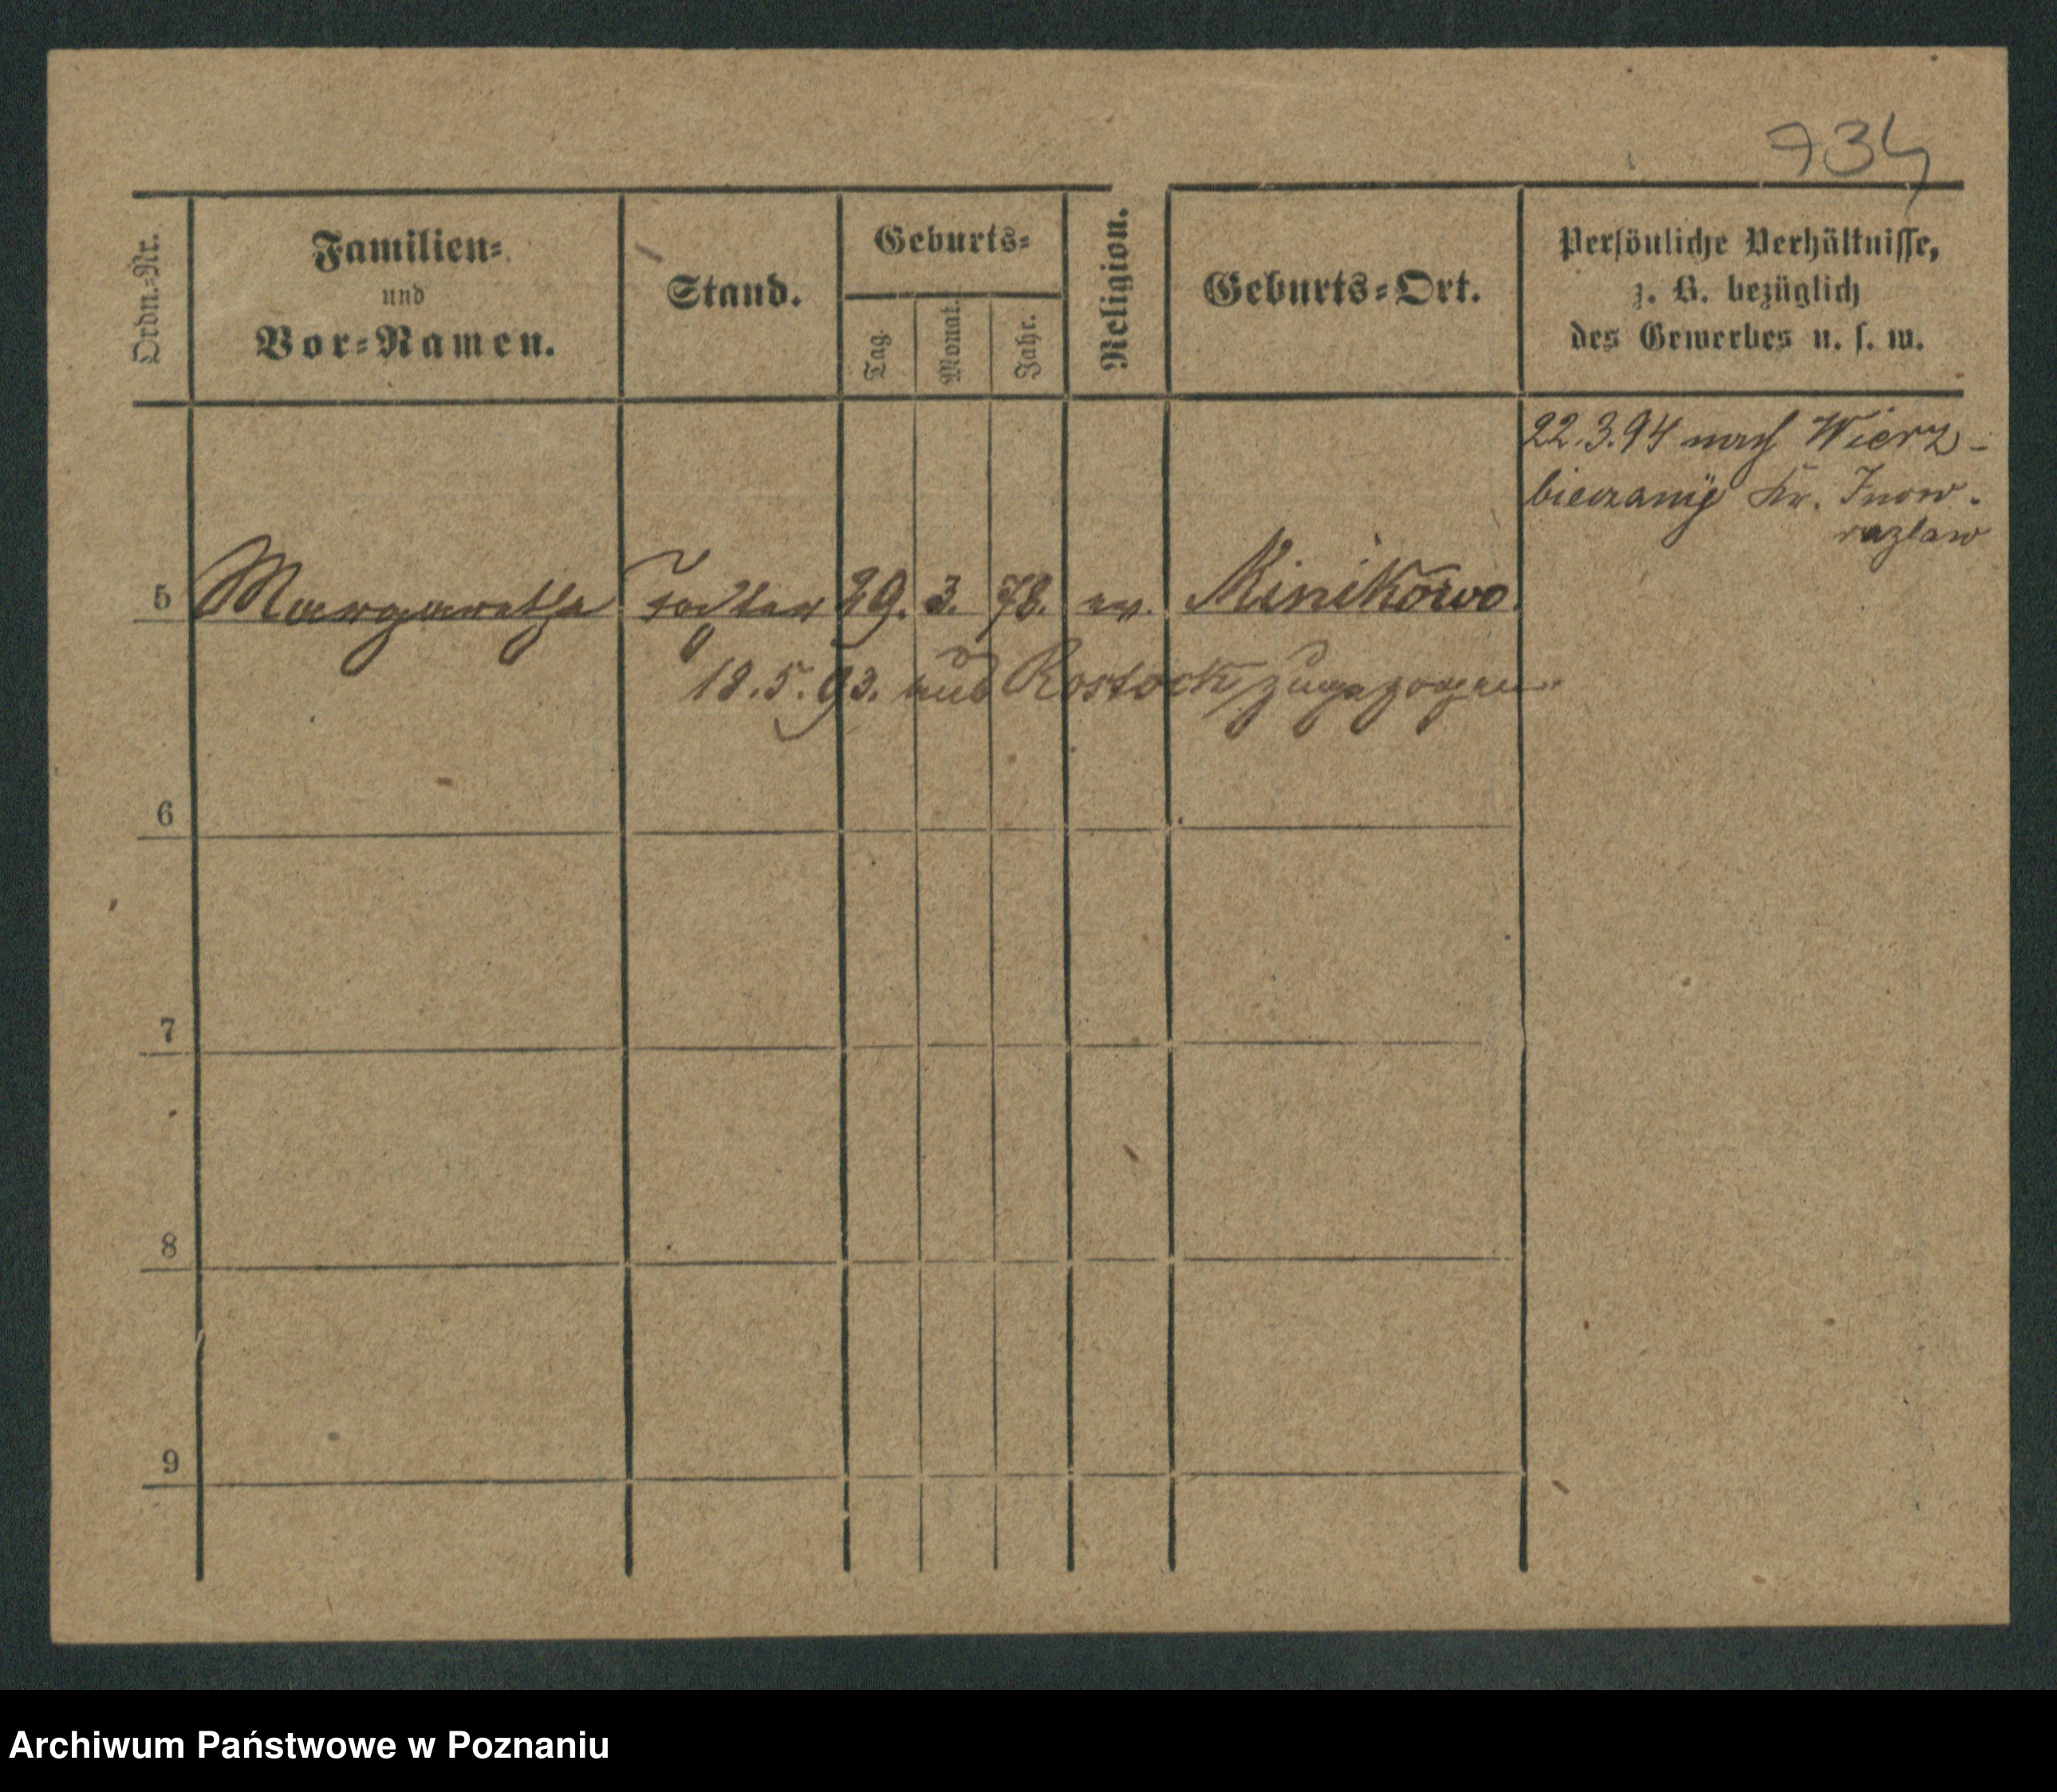 734
Ordn.-Nr.
Familien-
und
Vor-Namen.
Stand.
Geburts-
Tag.
Monat.
Jahr.
Religion.
Geburts-Ort.
Persönliche Verhältnisse,
z. B. bezüglich
des Gewerbes u. s. w.
22.3.94 nach Wierz-
biczany Kr. Inow-
razlaw
5 Margarethe Tochter 29. 3. 78. ev. Minikowo
18.5.93. aus Rostock zugezogen
6
7
8
9
Archiwum Państwowe w Poznaniu